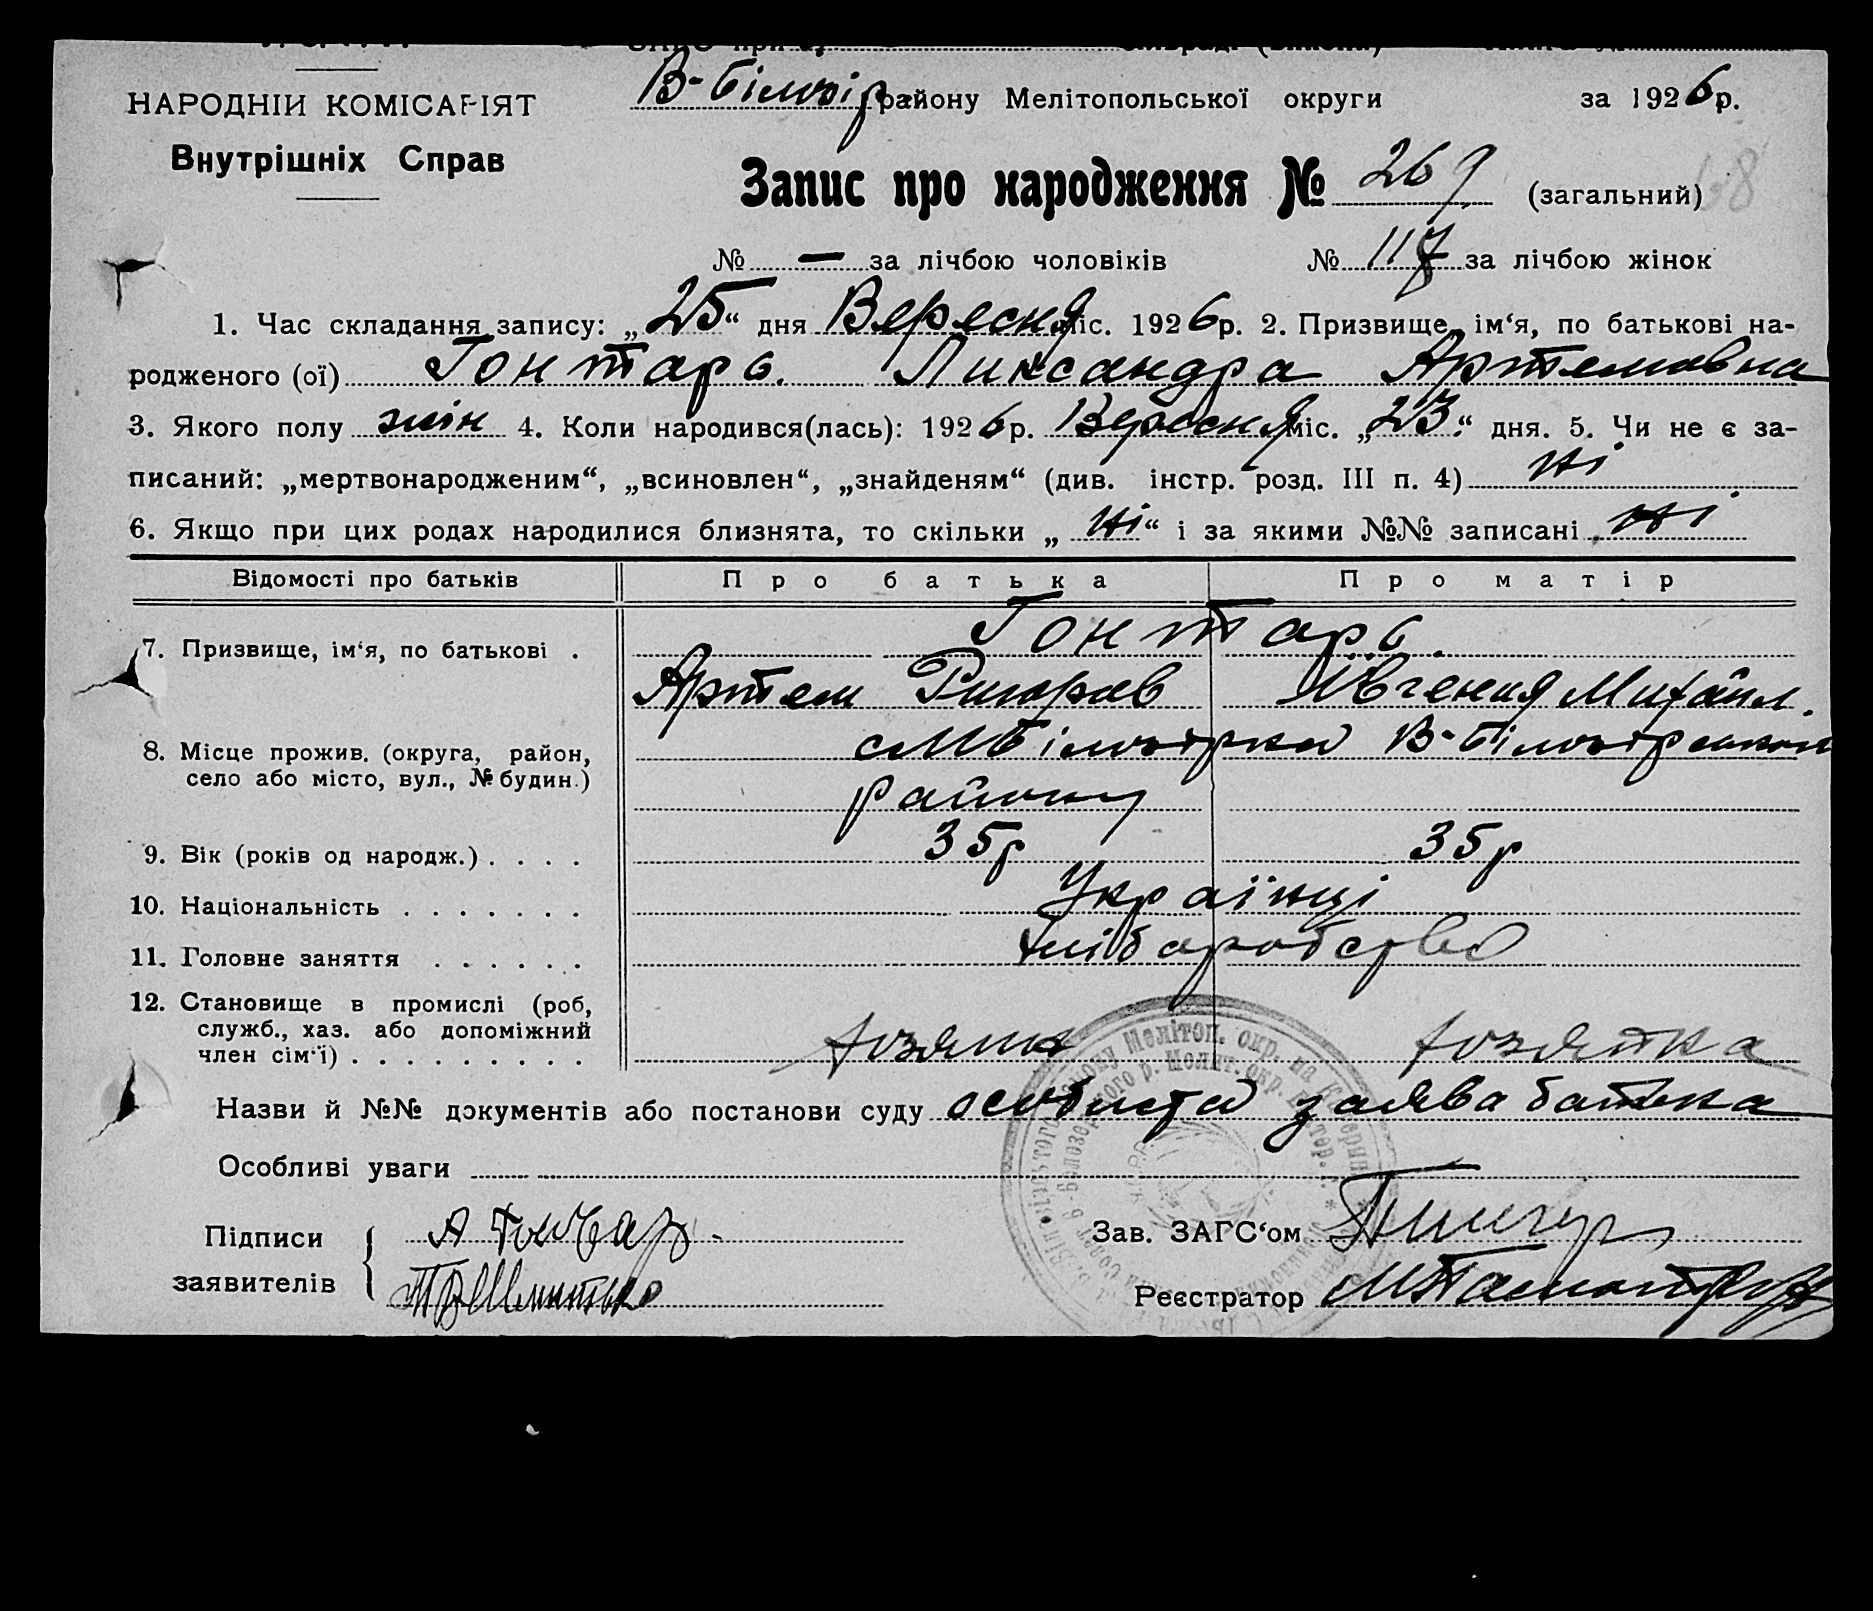 НАРОДНІЙ КОМІСАРІЯТ
Внутрішніх Справ
В-Білозір району Мелітопольської округи за 1926р.
Запис про народження № 269 (загальний)
68
№ — за лічбою чоловіків № 117 за лічбою жінок
1. Час складання запису: „25“ дня Вересня міс. 1926р. 2. Призвище, ім‘я, по батькові на-
родженого (ої) Гонтарь Ликсандра Артемовна
3. Якого полу жін 4. Коли народився(лась): 1926р. Вересня міс. „23“ дня. 5. Чи не є за-
писаний: „мертвонародженим“, „всиновлен“, „знайденям“ (див. інстр. розд. III п. 4) Ні
6. Якщо при цих родах народилися близнята, то скільки „Ні“ і за якими №№ записані Ні
Відомості про батьків Про батька Про матір
7. Призвище, ім‘я, по батькові . Гонтарь
Артем Григоров Ивгения Михайл.
8. Місце прожив. (округа, район, село або місто, вул., № будин.) Білозірка В-Білозірський
району
9. Вік (років од народж.) . . . . 35р 35р
10. Національність . . . . . . . Українці
11. Головне заняття . . . . . . хліборобство
12. Становище в промислі (роб, служб., хаз. або допоміжний член сім‘ї) . . . . . . . . . хозяин хозяйка
Назви й №№ документів або постанови суду особиста заява батька
Особливі уваги
Підписи заявителів А Гончар
Зав. ЗАГС‘ом
Реєстратор